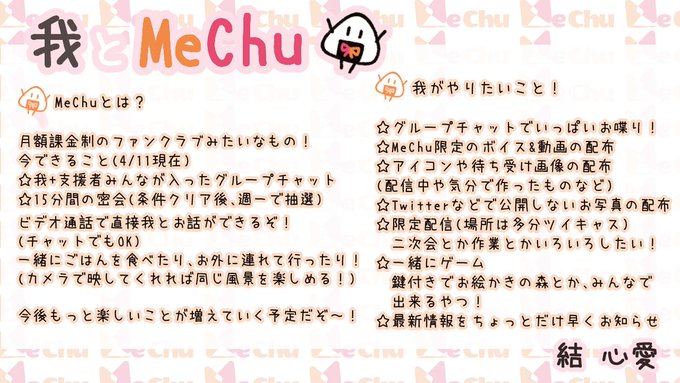 我とMeChu
MeChuとは？
月額課金制のファンクラブみたいなもの！
今できること(4/11現在)
☆我+支援者みんなが入ったグループチャット
☆15分間の密会(条件クリア後、週一で抽選)
ビデオ通話で直接我とお話ができるぞ！
(チャットでもOK)
一緒にごはんを食べたり、お外に連れて行ったり！
(カメラで映してくれれば同じ風景を楽しめる！)
今後もっと楽しいことが増えていく予定だぞ～！
我がやりたいこと！
☆グループチャットでいっぱいお喋り！
☆MeChu限定のボイス&動画の配布
☆アイコンや待ち受け画像の配布
(配信中や気分で作ったものなど)
☆Twitterなどで公開しないお写真の配布
☆限定配信(場所は多分ツイキャス)
二次会とか作業とかいろいろしたい！
☆一緒にゲーム
鍵付きでお絵かきの森とか、みんなで
出来るやつ！
☆最新情報をちょっとだけ早くお知らせ
結 心愛